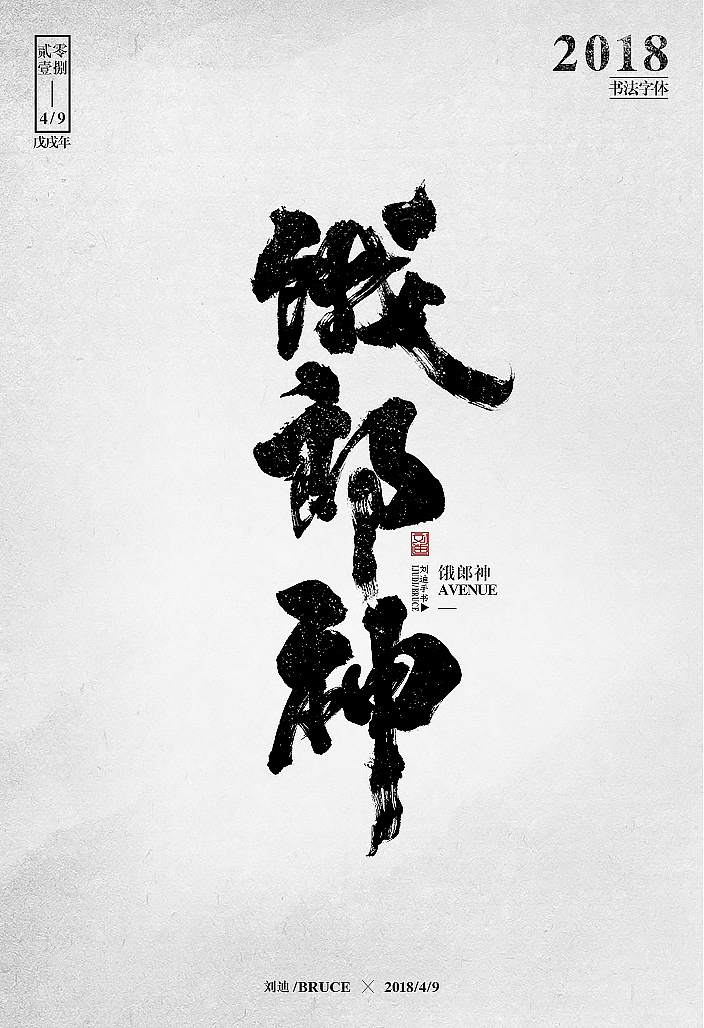 贰零
壹捌
4/9
戊戌年
2018
书法字体
饿
郎
神
刘迪
刘迪手书
LIUDI/BRUCE
饿郎神
AVENUE
刘迪/BRUCE × 2018/4/9